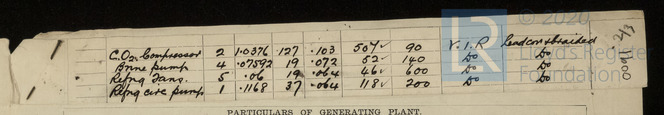 © 2020
Lloyd's Register
Foundation
CO₂ Compressor 2 1.0376 127 .103 507✓ 90 V.I.R Lead cov & braided
Brine pump 4 .07592 19 .072 52✓ 140 Do Do
Refng Fans. 5 .06 19 .064 46✓ 600 Do Do
Refng circ pump 1 .1168 37 .064 118✓ 200 Do Do
PARTICULARS OF GENERATING PLANT.